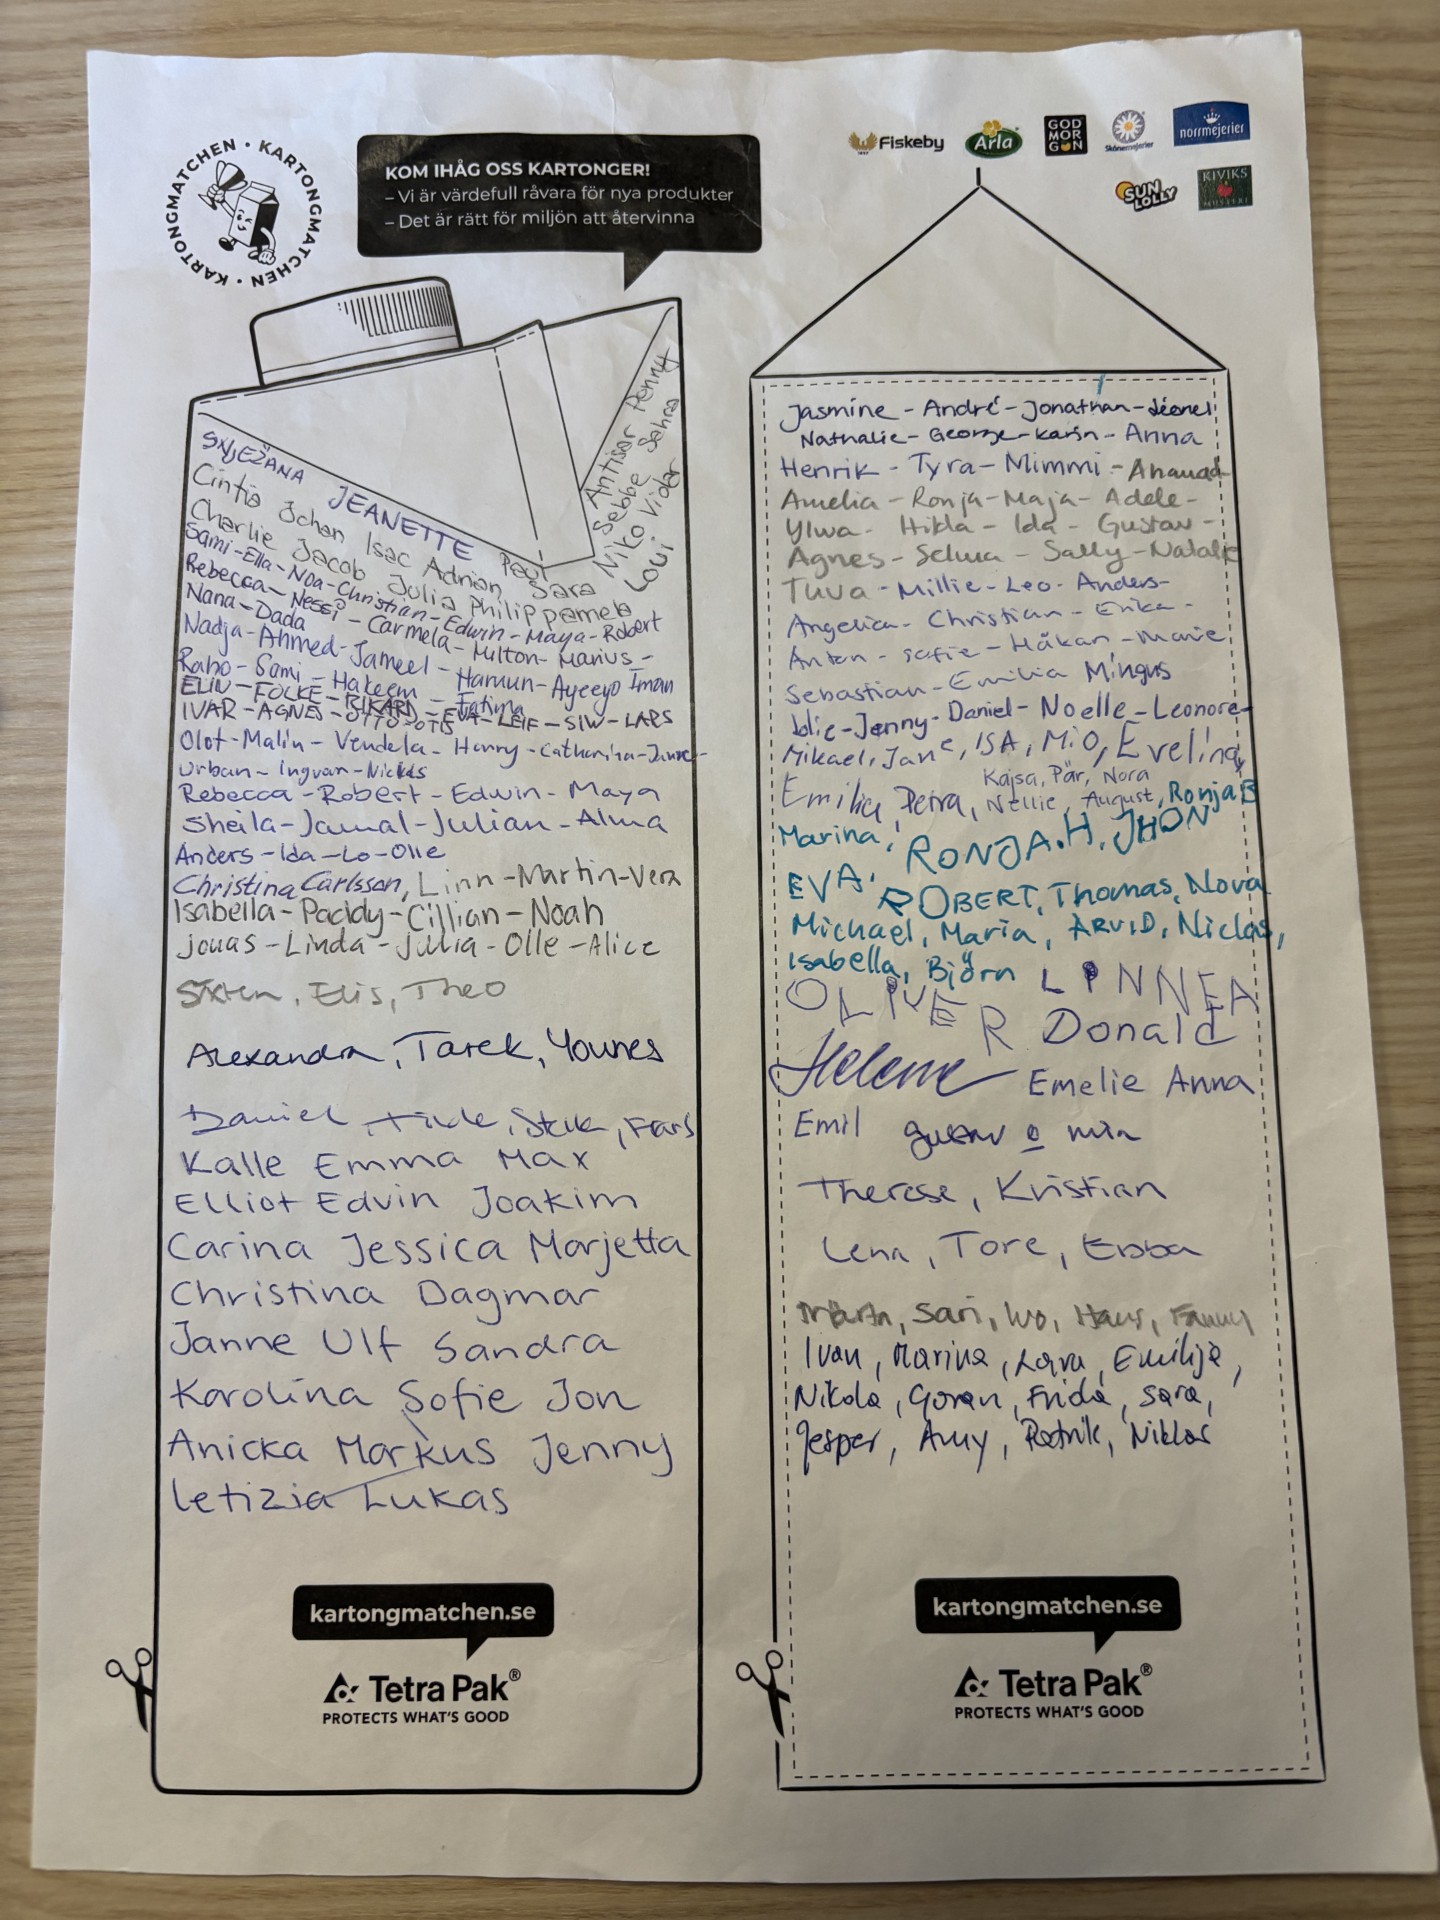 KARTONGMATCHEN · KARTONGMATCHEN · KARTONGMATCHEN ·
KOM IHÅG OSS KARTONGER!
– Vi är värdefull råvara för nya produkter
– Det är rätt för miljön att återvinna
Fiskeby
Arla
GOD MORGON
Skånemejerier
norrmejerier
SUN LOLLY
KIVIKS MUSTERI
SNJEŽANA JEANETTE
Cintia Johan Isac Adrian Paul Sara
Charlie Jacob Julia Philip pamela
Antisar Penny
Sebbe Sahra
Niko Vidar
Loui
Sami-Ella-Noa-Christian-Edwin-Maya-Robert
Rebecca-Nessi-Carmela-Milton-Marius-
Nana-Dada
Nadja-Ahmed-Jameel-Hamun-Ayeeyo Iman
Raho-Sami-Hakeem-Fatima
ELIN-FOLKE-RIKARD-EVA-LEIF-SIW-LARS
IVAR-AGNES-OTTO-OTIS
Olof-Malin-Vendela-Henry-Catharina-Janne-
Urban-Ingvar-Nicklas
Rebecca-Robert-Edwin-Maya
Sheila-Jamal-Julian-Alma
Anders-Ida-Lo-Olle
Christina Carlsson, Linn-Martin-Vera
Isabella-Paddy-Cillian-Noah
Jonas-Linda-Julia-Olle-Alice
Sixten, Elis, Theo
Alexandra, Tarek, Younes
Daniel, Tilde,
Kalle Emma Max
Elliot Edvin Joakim
Carina Jessica Marjetta
Christina Dagmar
Janne Ulf Sandra
Karolina Sofie Jon
Anicka Markus Jenny
Letizia Lukas
kartongmatchen.se
Tetra Pak®
PROTECTS WHAT'S GOOD
Jasmine-André-Jonathan-Léonel
Nathalie-George-Karin-Anna
Henrik-Tyra-Mimmi-
Amelia-Ronja-Maja-Adele-
Ylwa-Hilda-Ida-Gustav-
Agnes-Selma-Sally-Natalie
Tuva-Millie-Leo-Anders-
Angelica-Christian-Erika-
Anton-Sofie-Håkan-Marie
Sebastian-Emilia Mingus
Jolie-Jenny-Daniel-Noelle-Leonore-
Mikael, Jane, ISA, MIO, Evelina,
Emilia, Petra, Kajsa, Pär, Nora
Nellie, August, Ronja B
Marina, RONJA.H, JHON
EVA, ROBERT, Thomas, Nova
Michael, Maria, ARVID, Niclas,
Isabella, Björn LINNEA
OLIVER Donald
Helene Emelie Anna
Emil gustav o min
Therese, Kristian
Lena, Tore, Ebba
Märta, Sari, Ivo, Hans, Fanny
Ivan, Marina, Lara, Emilija,
Nikola, Goran, Frida, Sara,
Jesper, Amy, Patrik, Niklas
kartongmatchen.se
Tetra Pak®
PROTECTS WHAT'S GOOD